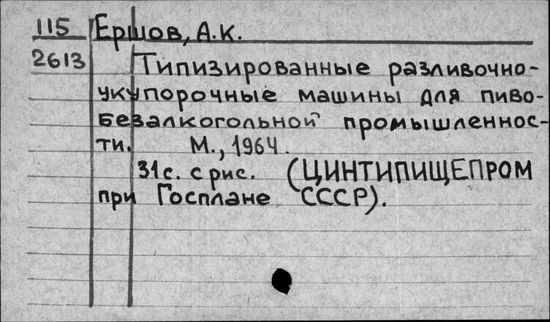 115 Ершов, А.К.
2613 Типизированные разливочно-
укупорочные машины для пиво-
безалкогольной промышленнос-
ти. М., 1964.
31с. с рис. (ЦИНТИПИЩЕПРОМ
при Госплане СССР).